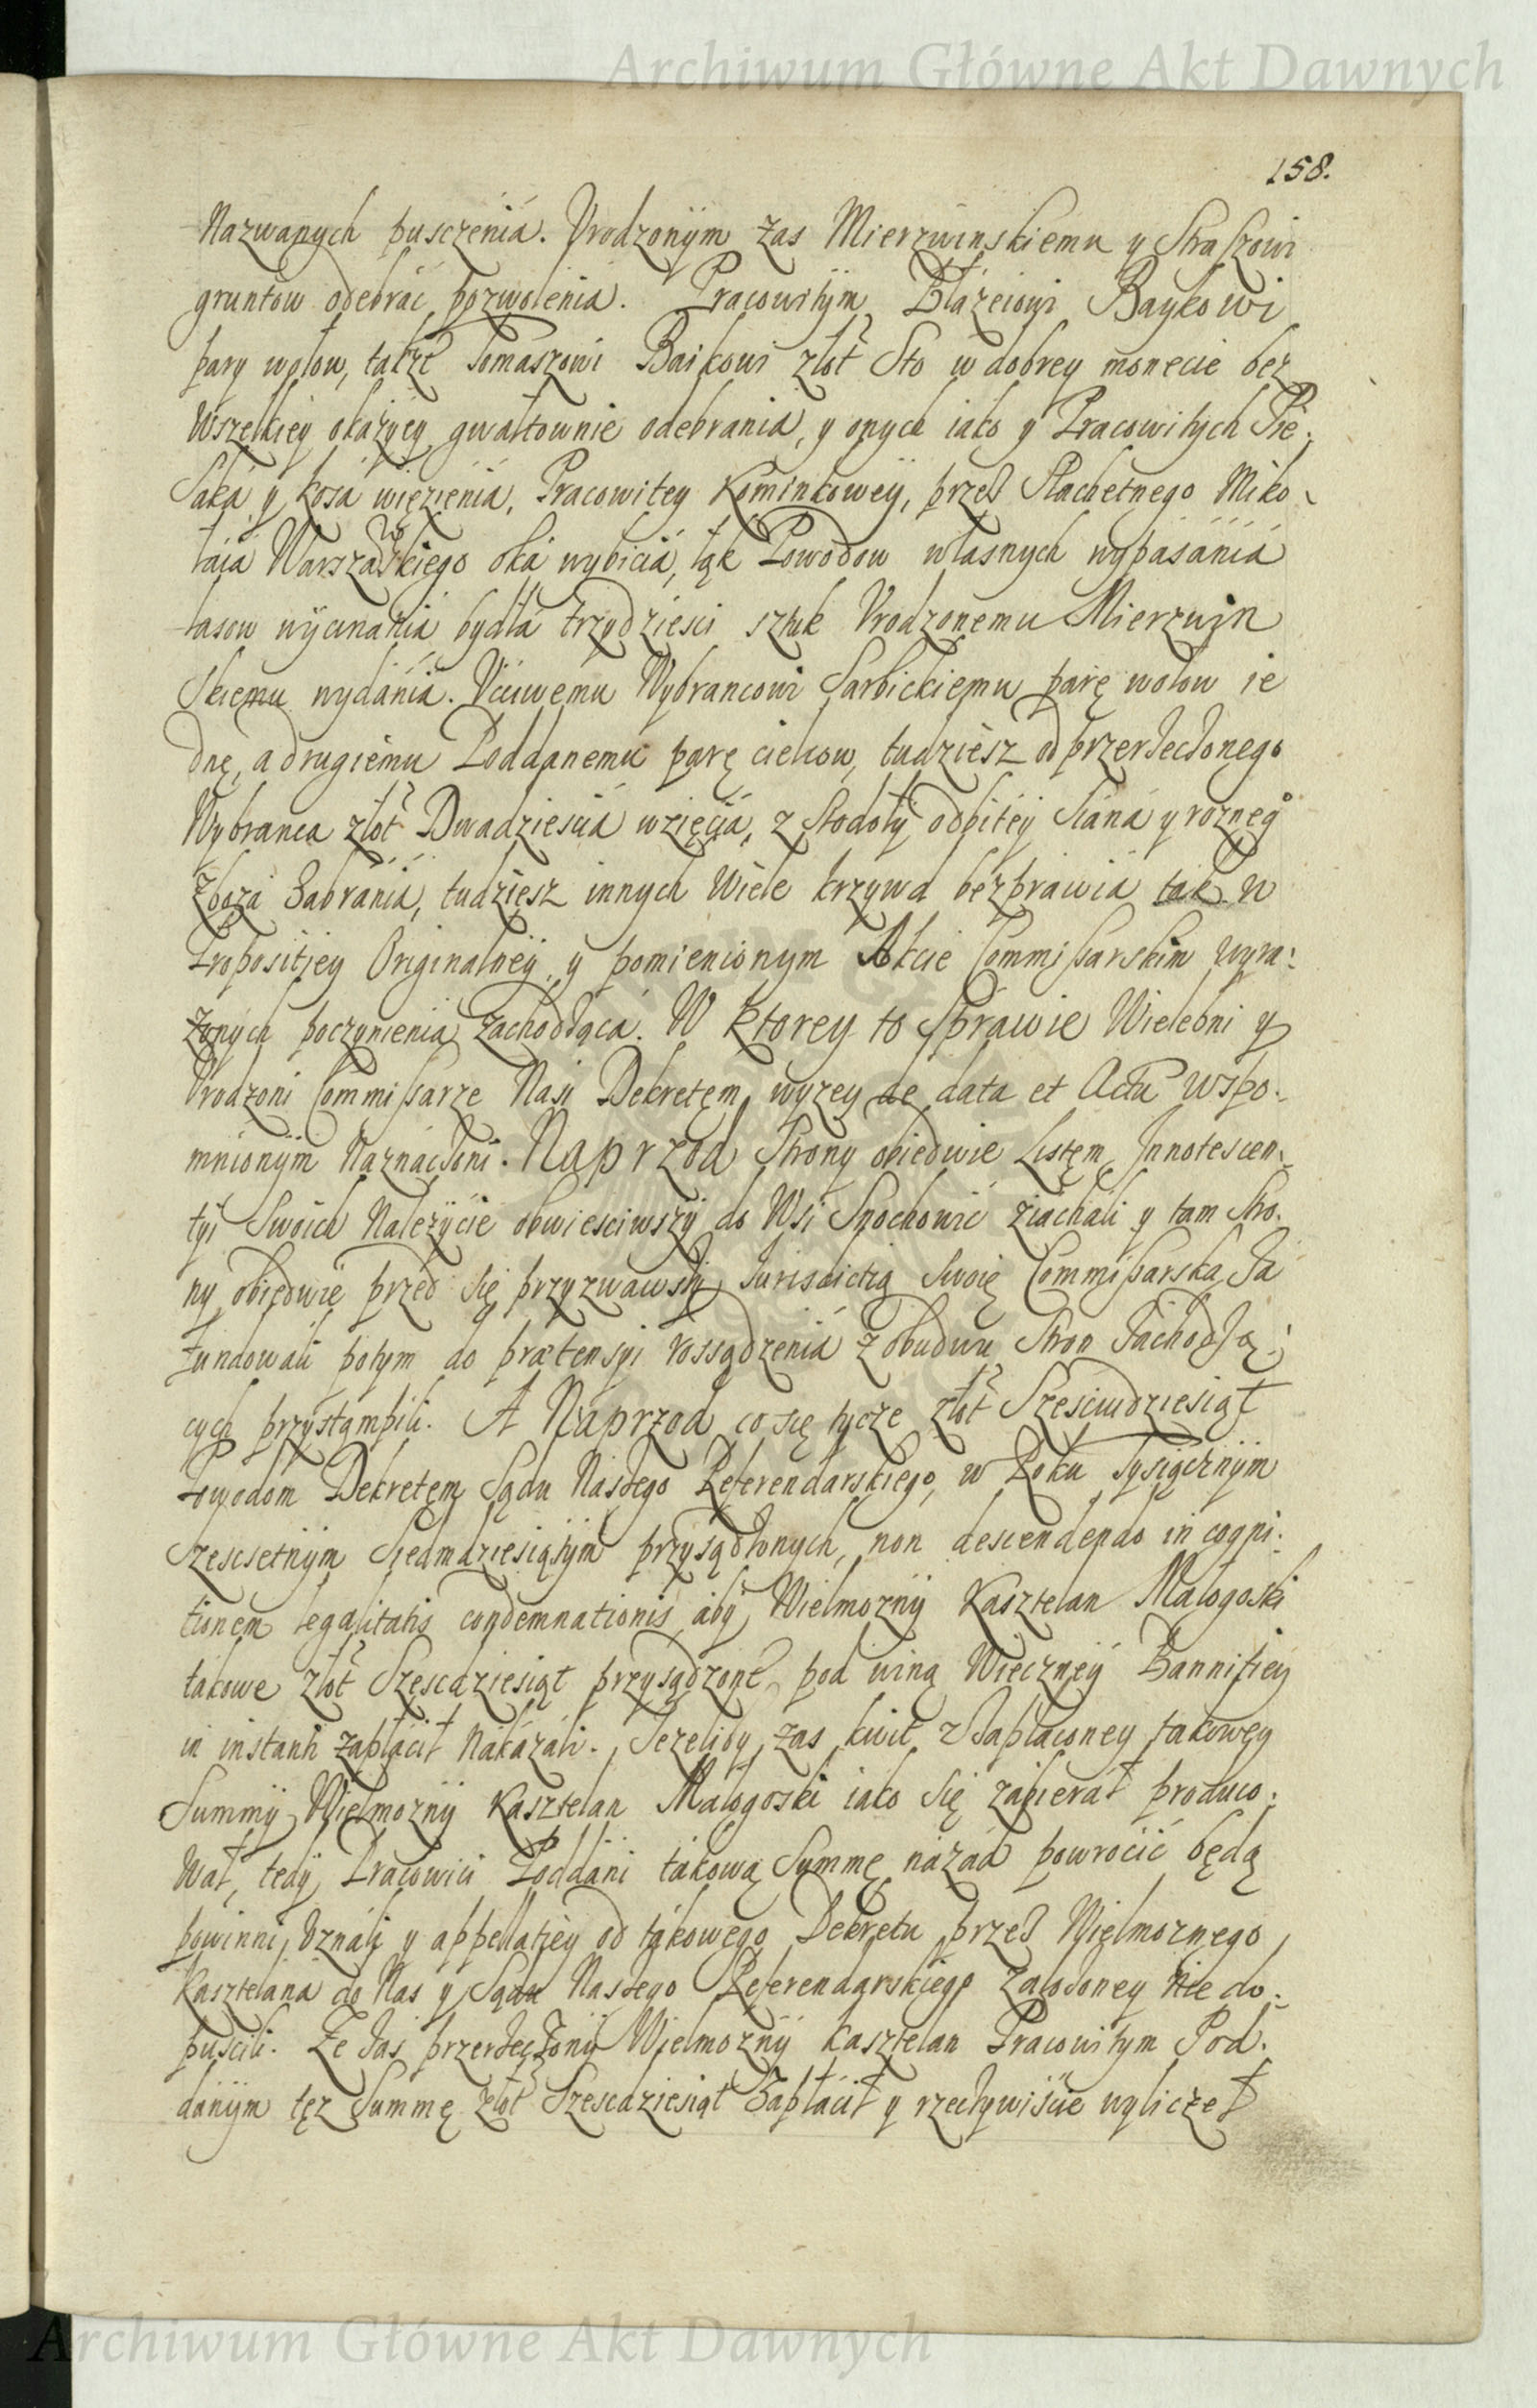 Archiwum Główne Akt Dawnych
158.
Nazwanych pusczeniá. Vrodzonym zas Mierzwinskiemu y Straszowi
gruntow odebráć pozwoleniá. Pracowitym Błázeiowi Baykowi
pary wołow, także Tomaszowi Baikowi złot Sto w dobrey monecie bez
Wszelkiey okazyey gwałtownie odebraniá, y onych iako y Pracowitych Pie:
Saká y Kosá więzieniá, Pracowitey Kominkowey, przez Slachetnego Miko
łaiá Warszawskiego oká wybiciá, łąk Powodow własnych wypásániá
lasow wycinániá bydłá trzydziesci sztuk Vrodzonemu Mierzwin
Skiemu wydániá. Vcciwemu Wybrancowi Sarbickiemu parę wołow ie
dnę, a drugiemu Poddanemu parę cielcow, tudziesz od przerzeczonego
Wybranca złot Dwadziesciá wzięciá, z Stodoły odbitey Siáná y rozneg°
Zbozá Zabrániá, tudziesz innych Wiele krzywd bezprawiá tak w
Propositiey Originalney y pomienionym Akcie Commissarskim wyra:
żonych poczynieniá zachodzącá. W Ktorey to Spráwie Wielebni y
Vrodzoni Commissarze Nasi Dekretęm wyzey de data et Actu wspo:
mnionym Náznáczeni. Naprzod Strony obiedwie Listęm Innotescen:
tyi Swoich Nalezycie obwiesciwszy do Wsi Snochowic ziacháli y tam Stro:
ny obiedwie przed się przyzwawszy Jurisdictią Swoię Commissarską Fá
fundowáli potym do prætensyi rossądzeniá z obudwu Stron Záchodzą:
cych przystąmpili. A Náprzod co się tycze złot Szesciudziesiąt
Powodom Dekretęm Sądu Naszego Referendarskiego, w Roku Tysiącznym
Szescsetnym Siedmdziesiątym przysądzonych, non descendendo in cogni:
tionem legalitatis condemnationis, aby Wielmozny Kasztelan Małogoski
tákowe złot Szescdziesiąt przysądzone, pod winą Wieczney Bannitiey
in instanti zápłácił Nákázáli. Jezeliby zas kwit z Zapłaconey takowey
Summy Wielmozny Kasztelan Małogoski iako się zábierał produco:
wał, tedy Pracowici Poddáni tákową Summę názad powrocić będą
powinni, Vználi y appellatiey od tákowego Dekretu przez Wielmoznego
Kasztelaná do Nas y Sądu Naszego Referendarskiego Załozoney nie do:
puscili. Ze zas przerzeczony Wielmozny Kasztelan Pracowitym Pod:
dánym tęz Summę złot Szescdziesiąt Zapłácił y rzeczywiscie wyliczeł
Archiwum Główne Akt Dawnych